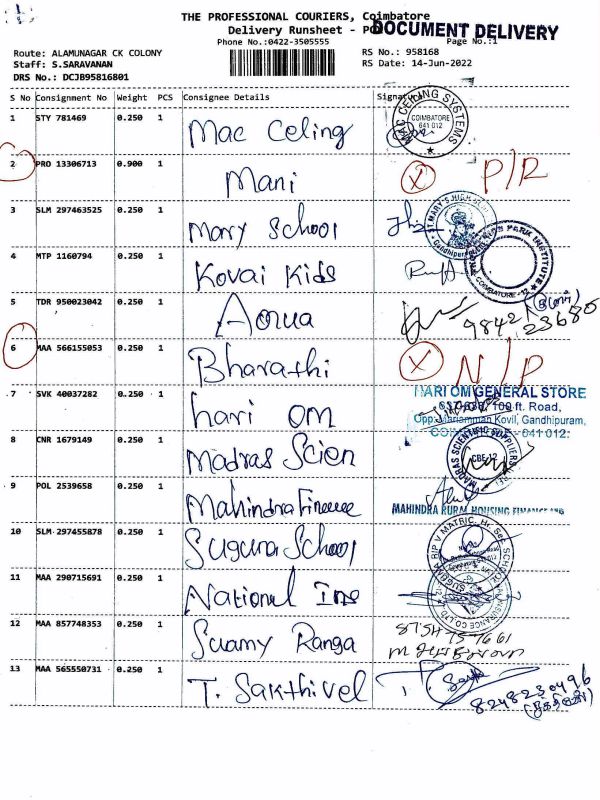 THE PROFESSIONAL COURIERS, Coimbatore
Delivery Runsheet - POD
DOCUMENT DELIVERY
Phone No.:0422-3505555
Page No.:1
Route: ALAMUNAGAR CK COLONY
RS No.: 958168
Staff: S.SARAVANAN
RS Date: 14-Jun-2022
DRS No.: DCJB95816801
S No Consignment No Weight PCS Consignee Details Signature
1 STY 781469 0.250 1 Mac Celing
MAC CEILING SYSTEMS COIMBATORE 641 012
2 PRO 13306713 0.900 1 Mani X P/R
3 SLM 297463525 0.250 1 Mary School
ST. MARY'S HIGH Gandhipuram
4 MTP 1160794 0.250 1 Kovai Kids
PARK INSTITUTE COIMBATORE - 12
5 TDR 950023042 0.250 1 Aqua
98421 23680
6 MAA 566155053 0.250 1 Bharathi X N/P
7 SVK 40037282 0.250 1 hari om
HARI OM GENERAL STORE
100 ft. Road,
Opp. Mariamman Kovil, Gandhipuram,
COIMBATORE - 641 012.
8 CNR 1679149 0.250 1 Madras Scien
MADRAS SCIENTIFIC SUPPLIERS CBE-12
9 POL 2539658 0.250 1 Mahindra Finance
MAHINDRA RURAL HOUSING FINANCE
10 SLM 297455878 0.250 1 Suguna School
SUGUNA RIP V MATRIC. Hr. Sec. SCHOOL
11 MAA 290715691 0.250 1 National Ins
INSURANCE CO.LTD
12 MAA 857748353 0.250 1 Swamy Ranga
8754 757661
13 MAA 565550731 0.250 1 T. Sakthivel
8248230496